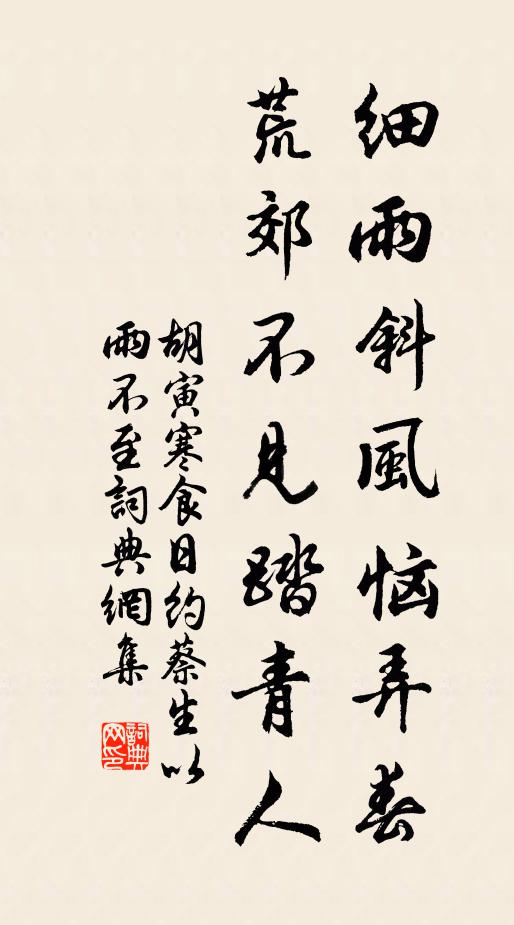 细雨斜風恼弄春
荒郊不見踏青人
胡寅寒食日約蔡生以
雨不至詞典網集
詞典
网印